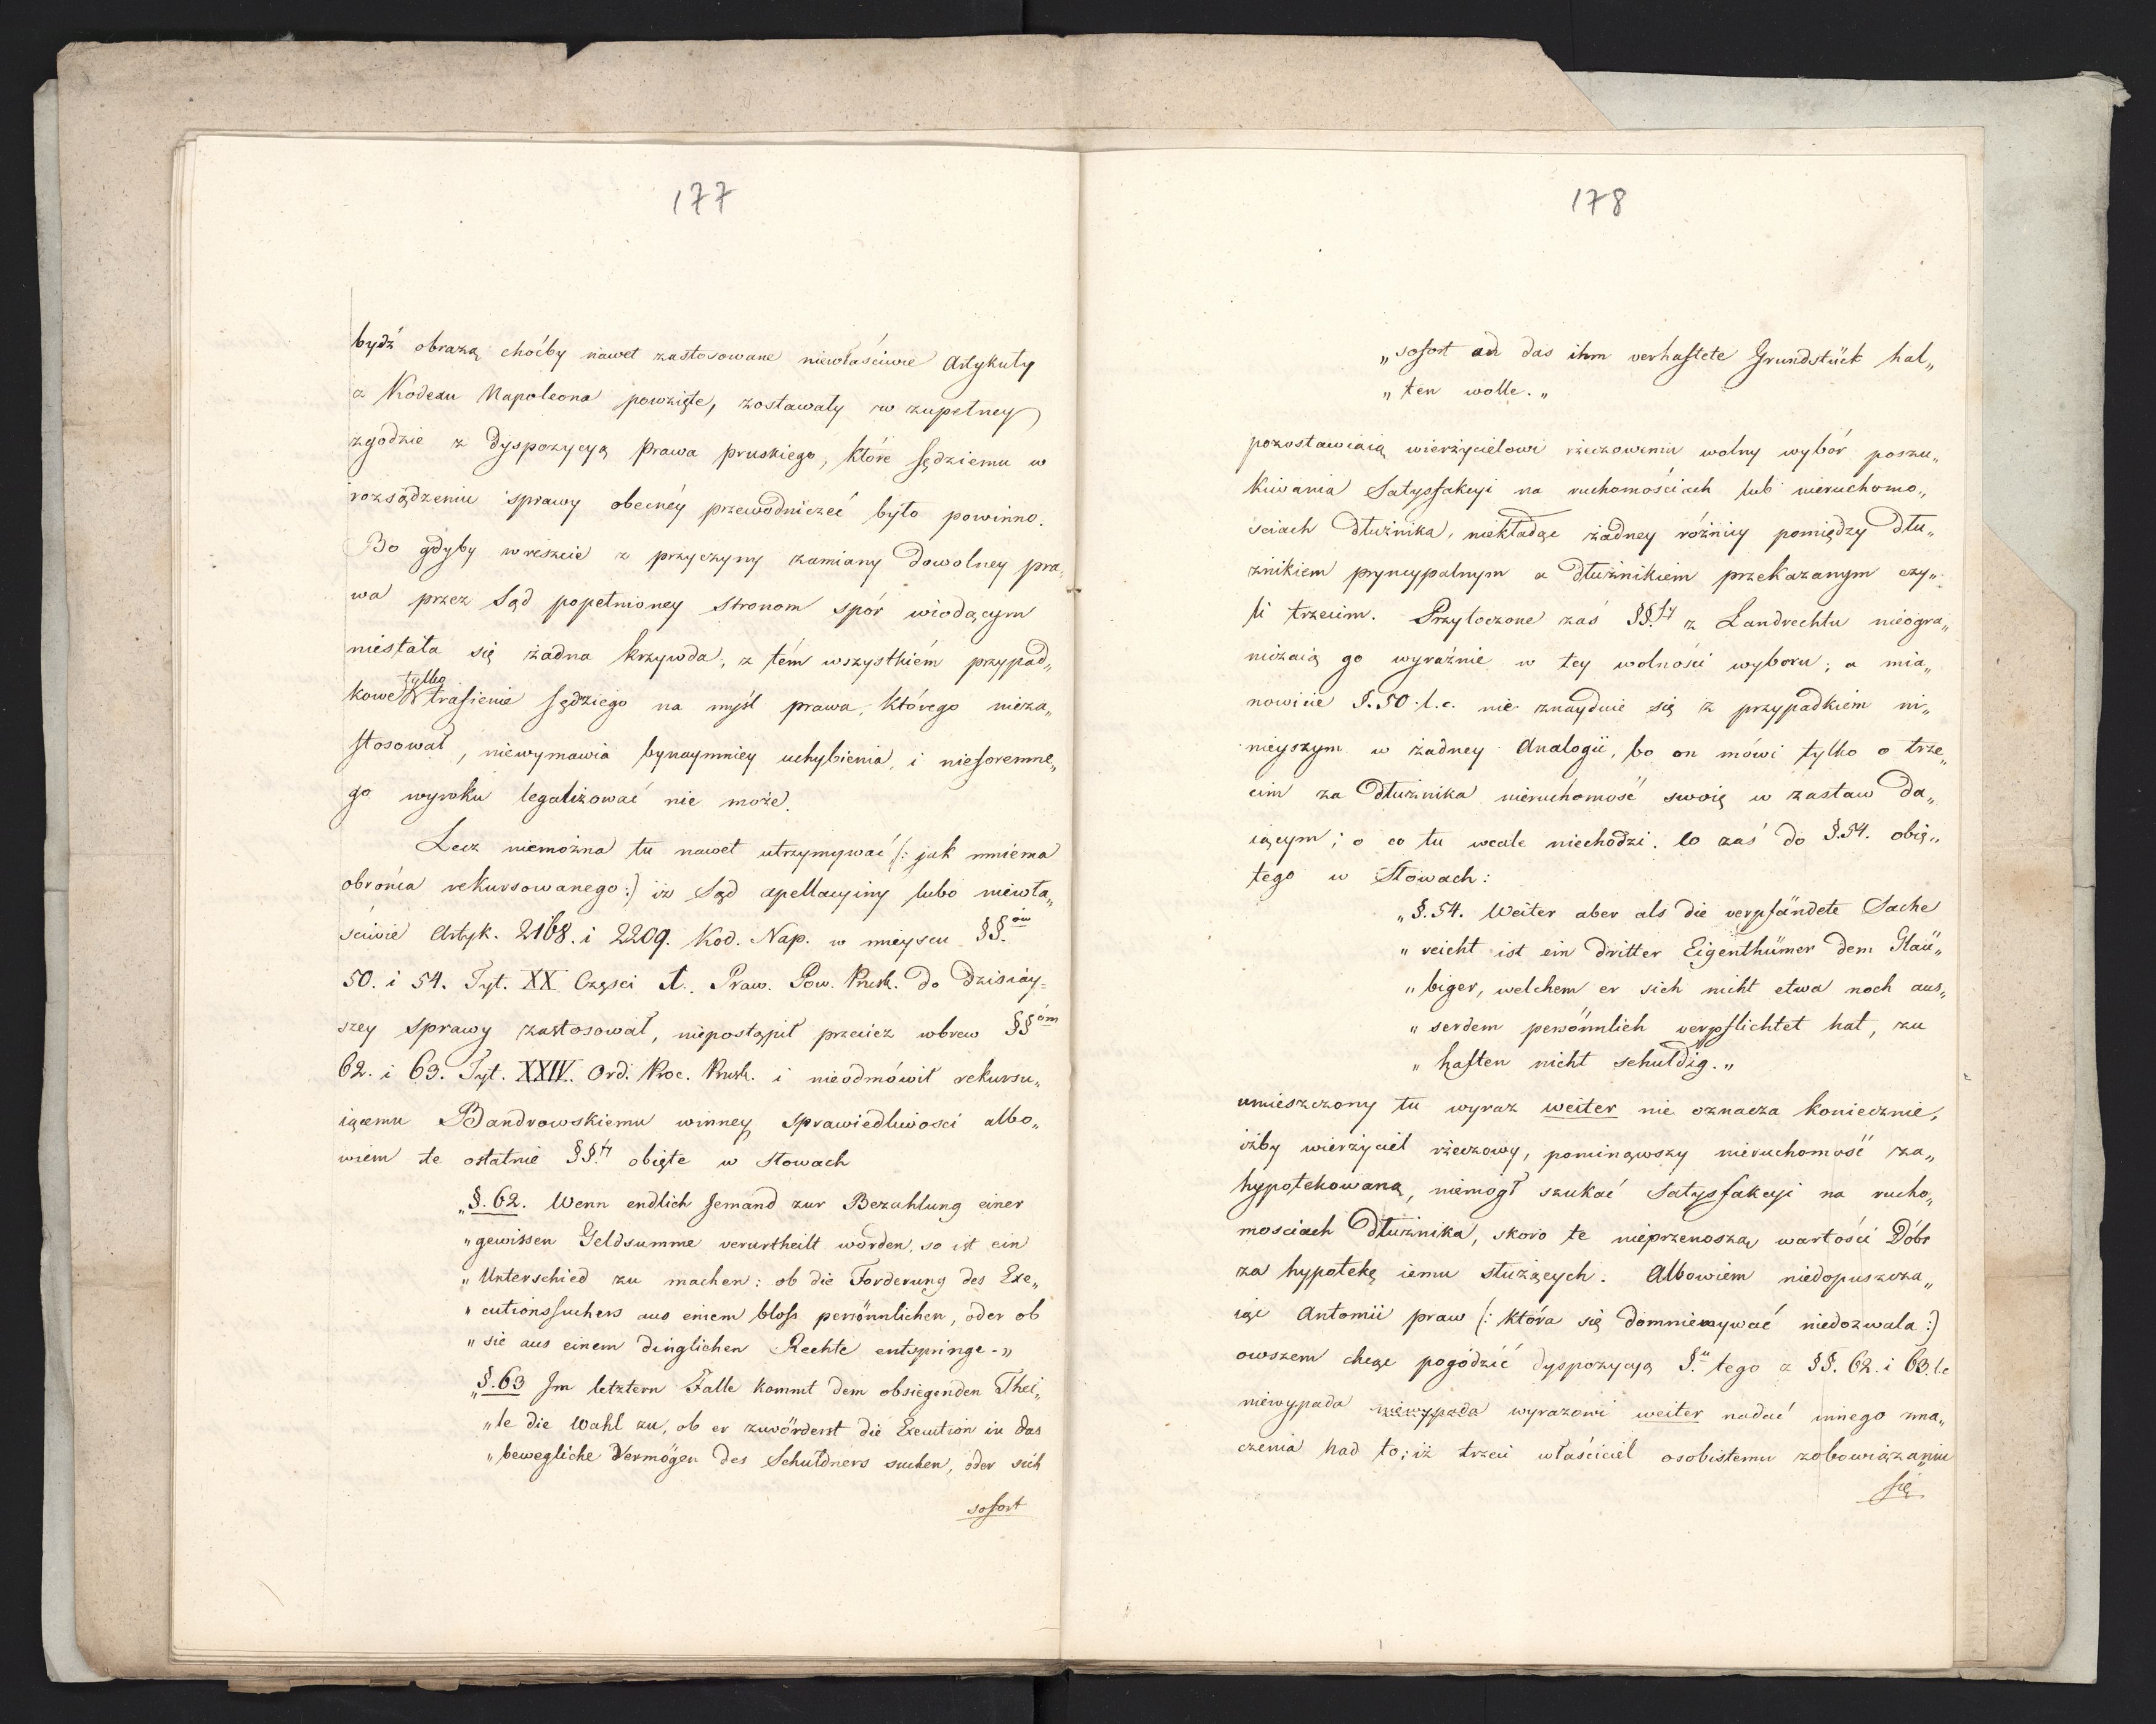 177
bydź obrazą choćby nawet zastosowane niewłaściwie Artykuły
z Kodexu Napoleona powzięte, zostawały w zupełney
zgodzie z dyspozycyą prawa pruskiego, które sędziemu w
rozsądzeniu sprawy obecnéy przewodniczeć było powinno.
Bo gdyby wreszcie z przyczyny zamiany dowolney pra„
wa przez Sąd popełnioney stronom spór wiodącym
niestała się żadna krzywda, z tém wszystkiém przypad„
kowe tylko trafienie sędziego na myśl prawa, którego nieza„
stosował, niewymawia bynaymniey uchybienia, i nieforemne„
go wyroku legalizować nie może.
Lecz niemożna tu nawet utrzymywać (: jak mniema
obrońca rekursowanego:) iż Sąd apellacyiny lubo niewła„
ściwie Artyk. 2168. i 2209. Kod. Nap. w mieyscu §§.ów
50. i 54. Tyt. XX Częsci I. Praw. Pow. Prusk. do dzisiay=
szey sprawy zastosował, niepostąpił przeciez wbrew §§óm
62. i 63. Tyt. XXIV. Ord. Proc. Prusk. i nieodmówił rekursu„
iącemu Bandrowskiemu winney sprawiedliwosci albo„
wiem te ostatnie §§.fy obięte w słowach
„§. 62. Wenn endlich Jemand zur Bezahlung einer
„gewissen Geldsumme verurtheilt worden, so ist ein
„Unterschied zu machen: ob die Forderung des Exe„
„cutionssuchers aus einem bloss persönnlichen, oder ob
„sie aus einem dinglichen Rechte entspringe-„
„§. 63 Im letztern Falle kommt dem obsiegenden Thei„
„le die Wahl zu, ob er zuwörderst die Execution in das
„bewegliche Vermögen des Schuldners suchen, oder sich
sofort
178
„sofort an das ihm verhaftete Grundstück hal„
„ten wolle.„
pozostawiaią wierzycielowi rzeczowemu wolny wybór poszu„
kiwania Satysfakcyi na ruchomościach lub nieruchomo„
sciach dłużnika, niekładąc żadney różnicy pomiędzy dłu„
żnikiem pryncypalnym a dłużnikiem przekazanym czy„
li trzecim. Przytoczone zaś §§.fy z Landrechtu nieogra„
niczaią go wyraźnie w tey wolności wyboru; a mia„
nowicie §. 50. l. c. nie znayduie się z przypadkiem ni„
nieyszym w żadney Analogii, bo on mówi tylko o trze„
cim za dłużnika nieruchomość swoię w zastaw da„
iącym; o co tu wcale niechodzi. Co zaś do §. 54. obię„
tego w Słowach:
„§. 54. Weiter aber als die verpfändete Sache
„reicht ist ein dritter Eigenthümer dem Glaü„
„biger, welchem er sich nicht etwa noch aus„
„serdem persönnlich verpflichtet hat, zu
„haften nicht schuldig.„
umieszczony tu wyraz weiter nie oznacza koniecznie,
iżby wierzyciel rzeczowy, pominąwszy nieruchomość za„
hypotekowaną, niemogł szukać Satysfakcyi na rucho„
mosciach dłużnika, skoro te nieprzenoszą wartości Dóbr
za hypotekę iemu służących. Albowiem niedopuszcza„
iąc Antomii praw (: która się domniemywać niedozwala :)
owszem chcąc pogodzić dyspozycyą §.u tego z §§. 62. i 63. l.c
niewypada niewypada wyrazowi weiter nadać innego zna„
czenia nad to; iż trzeci właściciel osobistemu zobowiązaniu
się